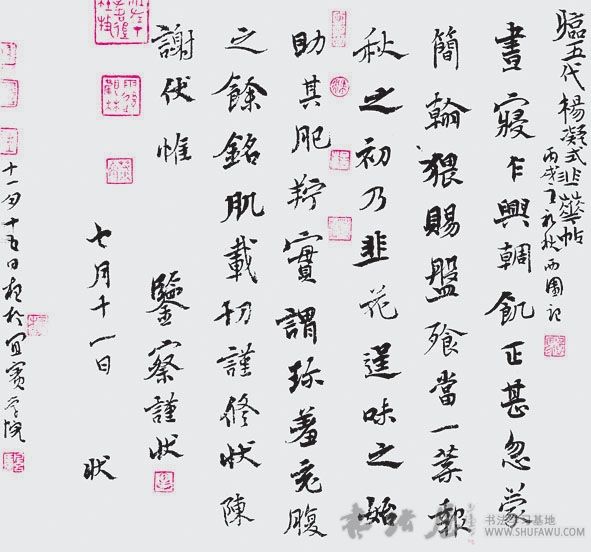 臨五代楊凝式韭華帖
丙戌初秋西園記
晝寢乍興輖飢正甚忽蒙
簡翰猥賜盤飧當一葉報
秋之初乃韭花逞味之始
助其肥羜實謂珍羞充腹
之餘銘肌載切謹修狀陳
謝伏惟
鑒察謹狀
七月十一日
狀
十一月十五日於宜賓學院
书法学习基地
WWW.SHUFAWU.COM